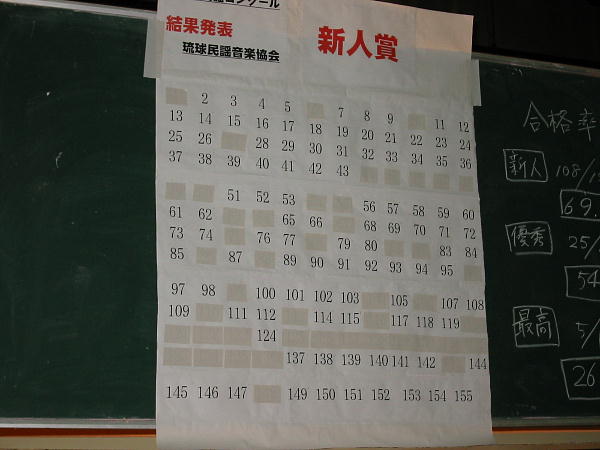 コンクール
結果発表
新人賞
琉球民謡音楽協会
2 3 4 5 7 8 9 11 12
13 14 15 16 17 18 19 20 21 22 23 24
25 26 28 29 30 31 32 33 34 35 36
37 38 39 40 41 42 43
51 52 53 56 57 58 59 60
61 62 65 66 68 69 70 71 72
73 74 76 77 79 80 83 84
85 87 89 90 91 92 93 94 95
97 98 100 101 102 103 105 107 108
109 111 112 114 115 117 118 119
124
137 138 139 140 141 142 144
145 146 147 149 150 151 152 153 154 155
合格率
新人 108/1
69.
優秀 25/
54
最高 5/
26